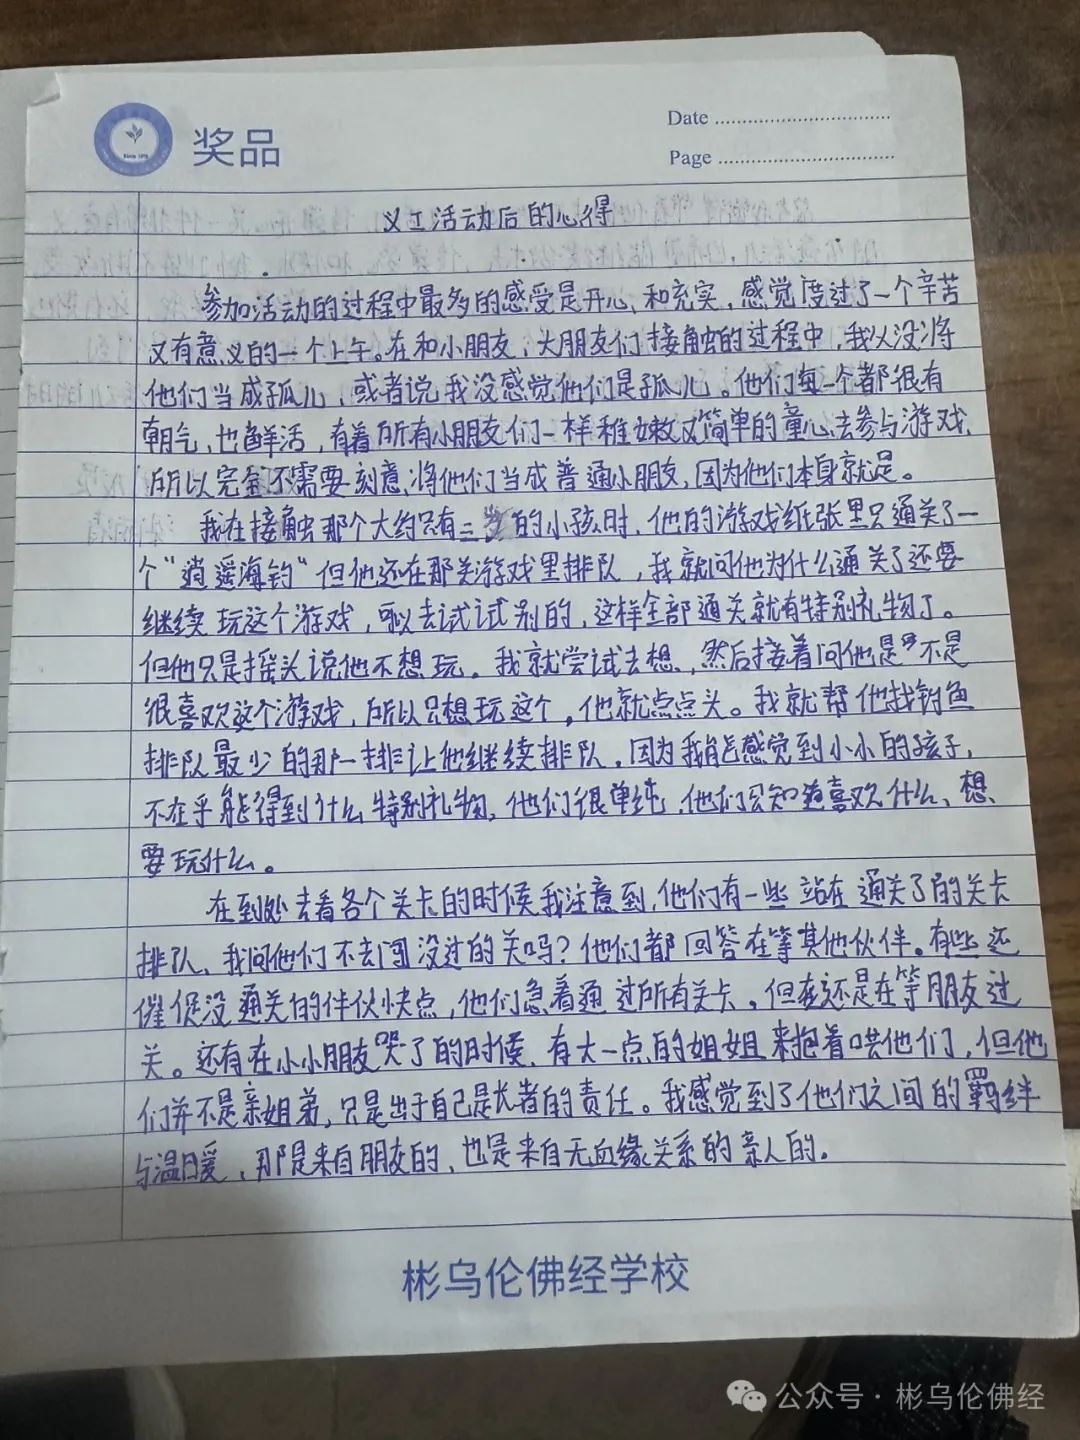 奖品
Date
Page
义工活动后的心得
参加活动的过程中最多的感受是开心、和充实，感觉度过了一个辛苦
又有意义的一个上午。在和小朋友、大朋友们接触的过程中，我从没将
他们当成孤儿，或者说我没感觉他们是孤儿。他们每一个都很有
朝气，也鲜活，有着所有小朋友们一样稚嫩又简单的童心去参与游戏，
所以完全不需要刻意将他们当成普通小朋友，因为他们本身就是。
我在接触那个大约只有三岁的小孩时，他的游戏纸张里只通关了一
个“逍遥海钓”但他还在那关游戏里排队，我就问他为什么通关了还要
继续玩这个游戏，可以去试试别的，这样全部通关就有特别礼物了。
但他只是摇头说他不想玩。我就尝试去想，然后接着问他是不是
很喜欢这个游戏，所以只想玩这个，他就点点头。我就帮他找钓鱼
排队最少的那一排让他继续排队。因为我能感觉到小小的孩子，
不在乎能得到什么特别礼物，他们很单纯，他们只知道喜欢什么、想
要玩什么。
在到处去看各个关卡的时候我注意到，他们有一些站在通关了的关卡
排队、我问他们不去闯没过的关吗？他们都回答在等其他伙伴。有些还
催促没通关的伴伙快点，他们急着通过所有关卡。但还是在等朋友过
关。还有在小小朋友哭了的时候，有大一点的姐姐来抱着哄他们，但他
们并不是亲姐弟，只是出于自己是长者的责任。我感觉到了他们之间的羁绊
与温暖，那是来自朋友的，也是来自无血缘关系的亲人的。
彬乌伦佛经学校
公众号·彬乌伦佛经